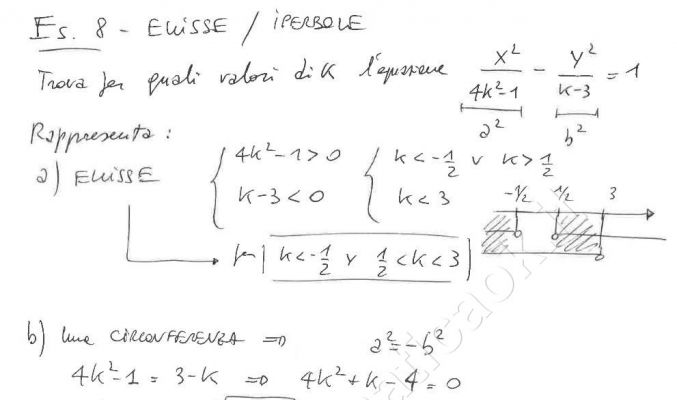 Es. 8 - ELLISSE / IPERBOLE
Trova per quali valori di K l'equazione x²/(4k²-1) - y²/(k-3) = 1
a² b²
Rappresenta:
a) ELLISSE { 4k²-1>0 { k<-1/2 v k>1/2
k-3<0 k<3
-1/2 1/2 3
per k<-1/2 v 1/2<k<3
b) Una CIRCONFERENZA => a²=-b²
4k²-1 = 3-k => 4k²+k-4=0